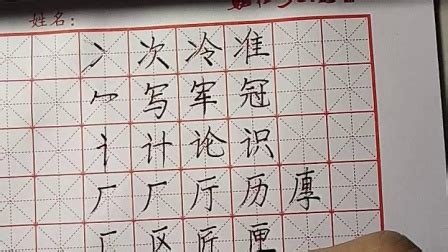 姓名：
冫次冷准
冖写军冠
讠计论识
厂厂厅历厚
匚区匠匣